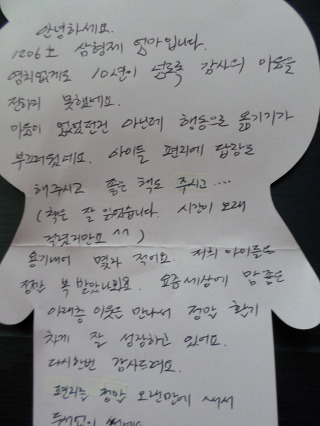 안녕하세요.
1206호 삼형제 엄마입니다.
염치없게도 10년이 넘도록 감사의 마음을
전하지 못했네요.
마음이 없었던건 아닌데 행동으로 옮기기가
부끄러웠네요. 아이들 편지에 답장도
해주시고 좋은 책도 주시고....
(책은 잘 읽었습니다. 시간이 오래
걸렸지만요 ^^)
용기내어 몇자 적어요. 저희 아이들은
정말 복 받았나봐요. 요즘세상에 맘 좋은
아래층 이웃을 만나서 정말 활기
차게 잘 성장하고 있어요.
다시한번 감사드려요.
편지는 정말 오랜만에 써서